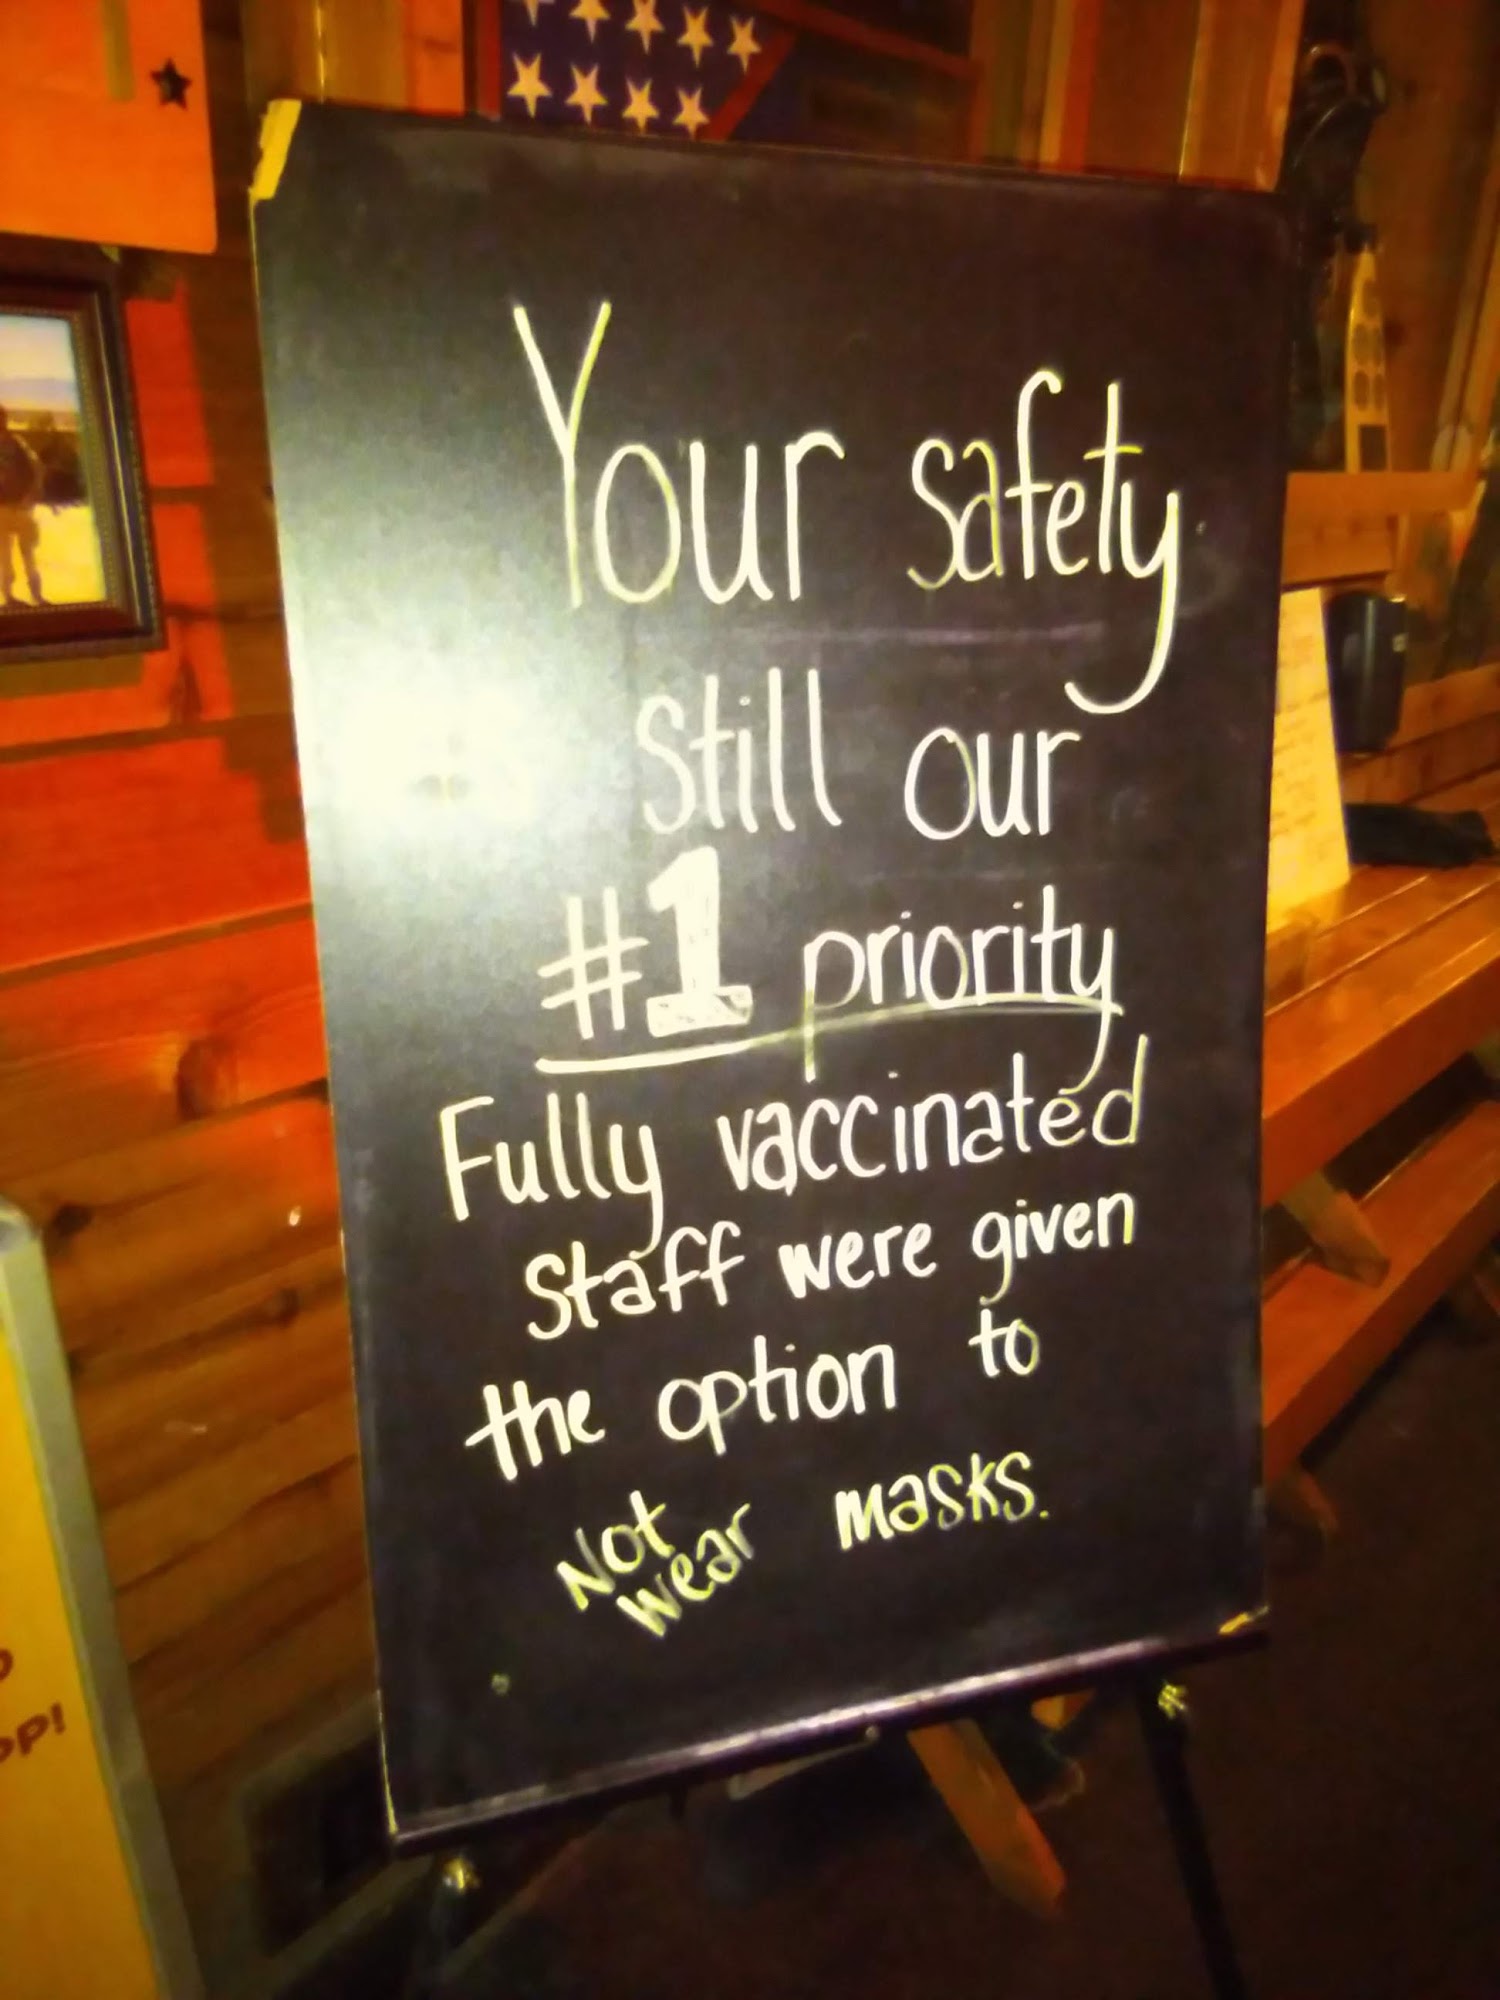 Your safety
still our
#1 priority
Fully vaccinated
staff were given
the option to
Not wear masks.
OP!